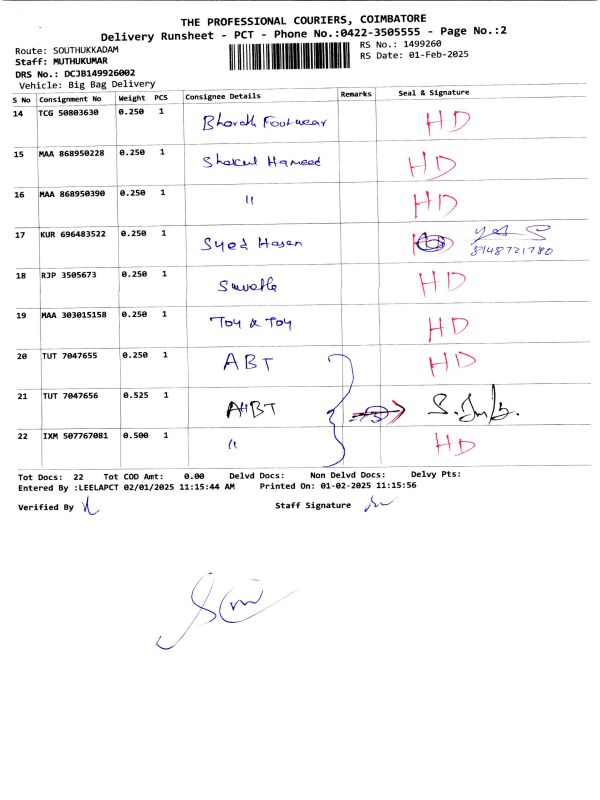 THE PROFESSIONAL COURIERS, COIMBATORE
Delivery Runsheet - PCT - Phone No.:0422-3505555 - Page No.:2
Route: SOUTHUKKADAM RS No.: 1499260
Staff: MUTHUKUMAR RS Date: 01-Feb-2025
DRS No.: DCJB149926002
Vehicle: Big Bag Delivery
S No Consignment No Weight PCS Consignee Details Remarks Seal & Signature
14 TCG 50803630 0.250 1 Bharath Footwear HD
15 MAA 868950228 0.250 1 Shakul Hameed HD
16 MAA 868950390 0.250 1 " HD
17 KUR 696483522 0.250 1 Syed Hasan HD
8148721780
18 RJP 3505673 0.250 1 HD
19 MAA 303015158 0.250 1 Toy & Toy HD
20 TUT 7047655 0.250 1 ABT HD
21 TUT 7047656 0.525 1 ABT
22 IXM 507767081 0.500 1 " HD
Tot Docs: 22 Tot COD Amt: 0.00 Delvd Docs: Non Delvd Docs: Delvy Pts:
Entered By :LEELAPCT 02/01/2025 11:15:44 AM Printed On: 01-02-2025 11:15:56
Verified By Staff Signature